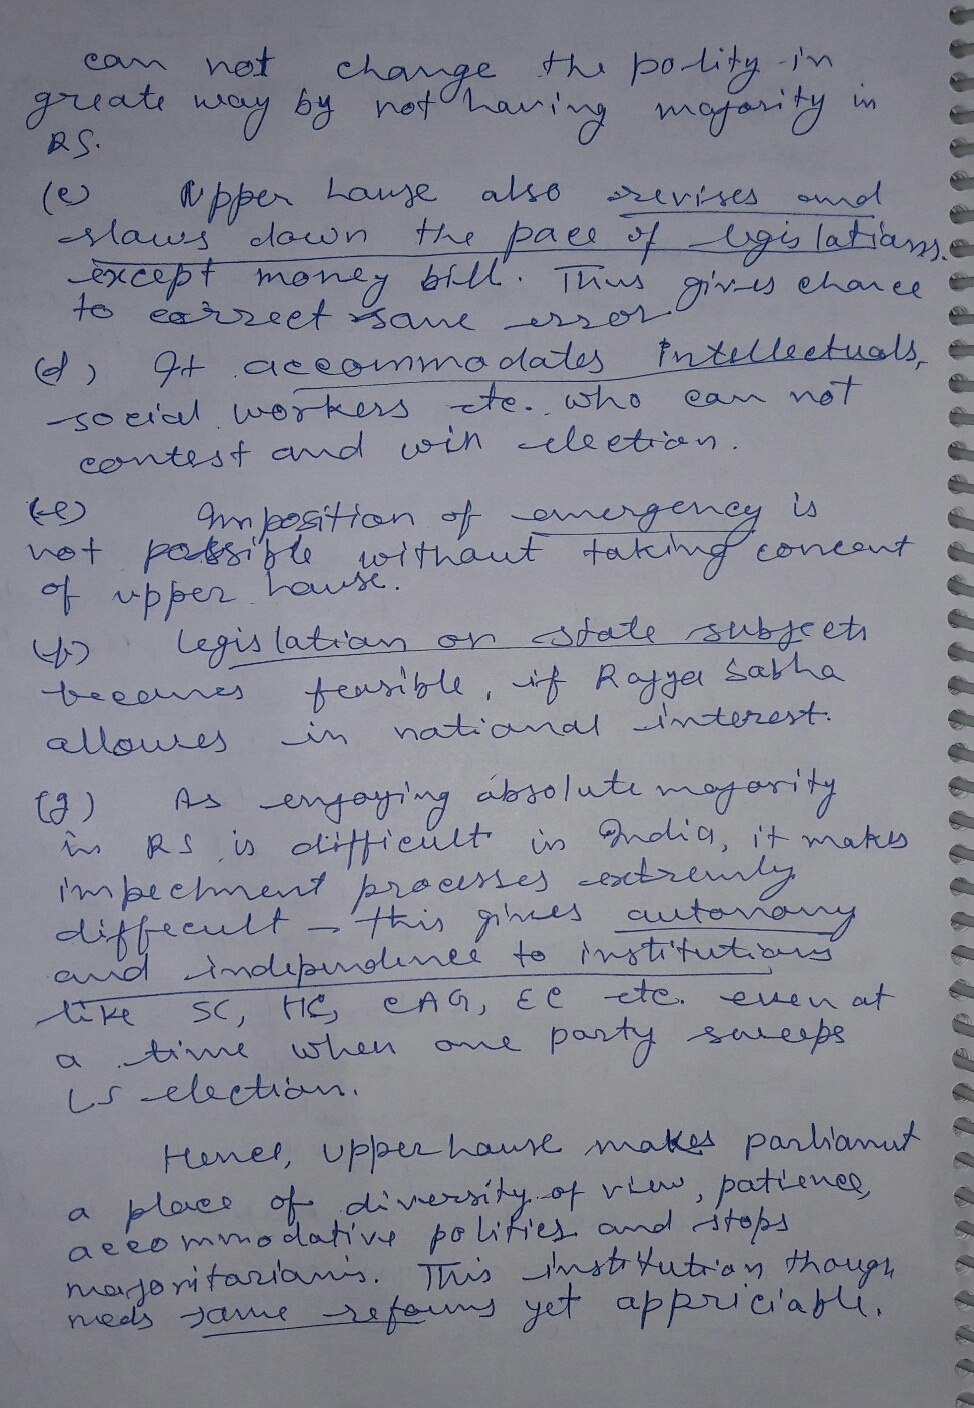 can not change the polity in
greate way by not having majority in
RS.
(c) Upper house also revises and
slows down the pace of legislations.
except money bill. Thus gives chance
to correct some error
(d) It accommodates intellectuals,
social workers etc. who can not
contest and win election.
(e) Imposition of emergency is
not possible without taking concent
of upper house.
(f) legislation on state subjects
becomes feasible, if Rajya Sabha
allowes in national interest.
(g) As enjoying absolute majority
in RS is difficult in India, it makes
impechment processes extremly
diffecult - this gives autonomy
and independence to institutions
like SC, HC, CAG, EC etc. even at
a time when one party sweeps
LS election.
Hence, upper house makes parliamnt
a place of diversity of view, patience,
accommodative politics and stops
majoritarianis. This institution though
needs some reforms yet appriciable.